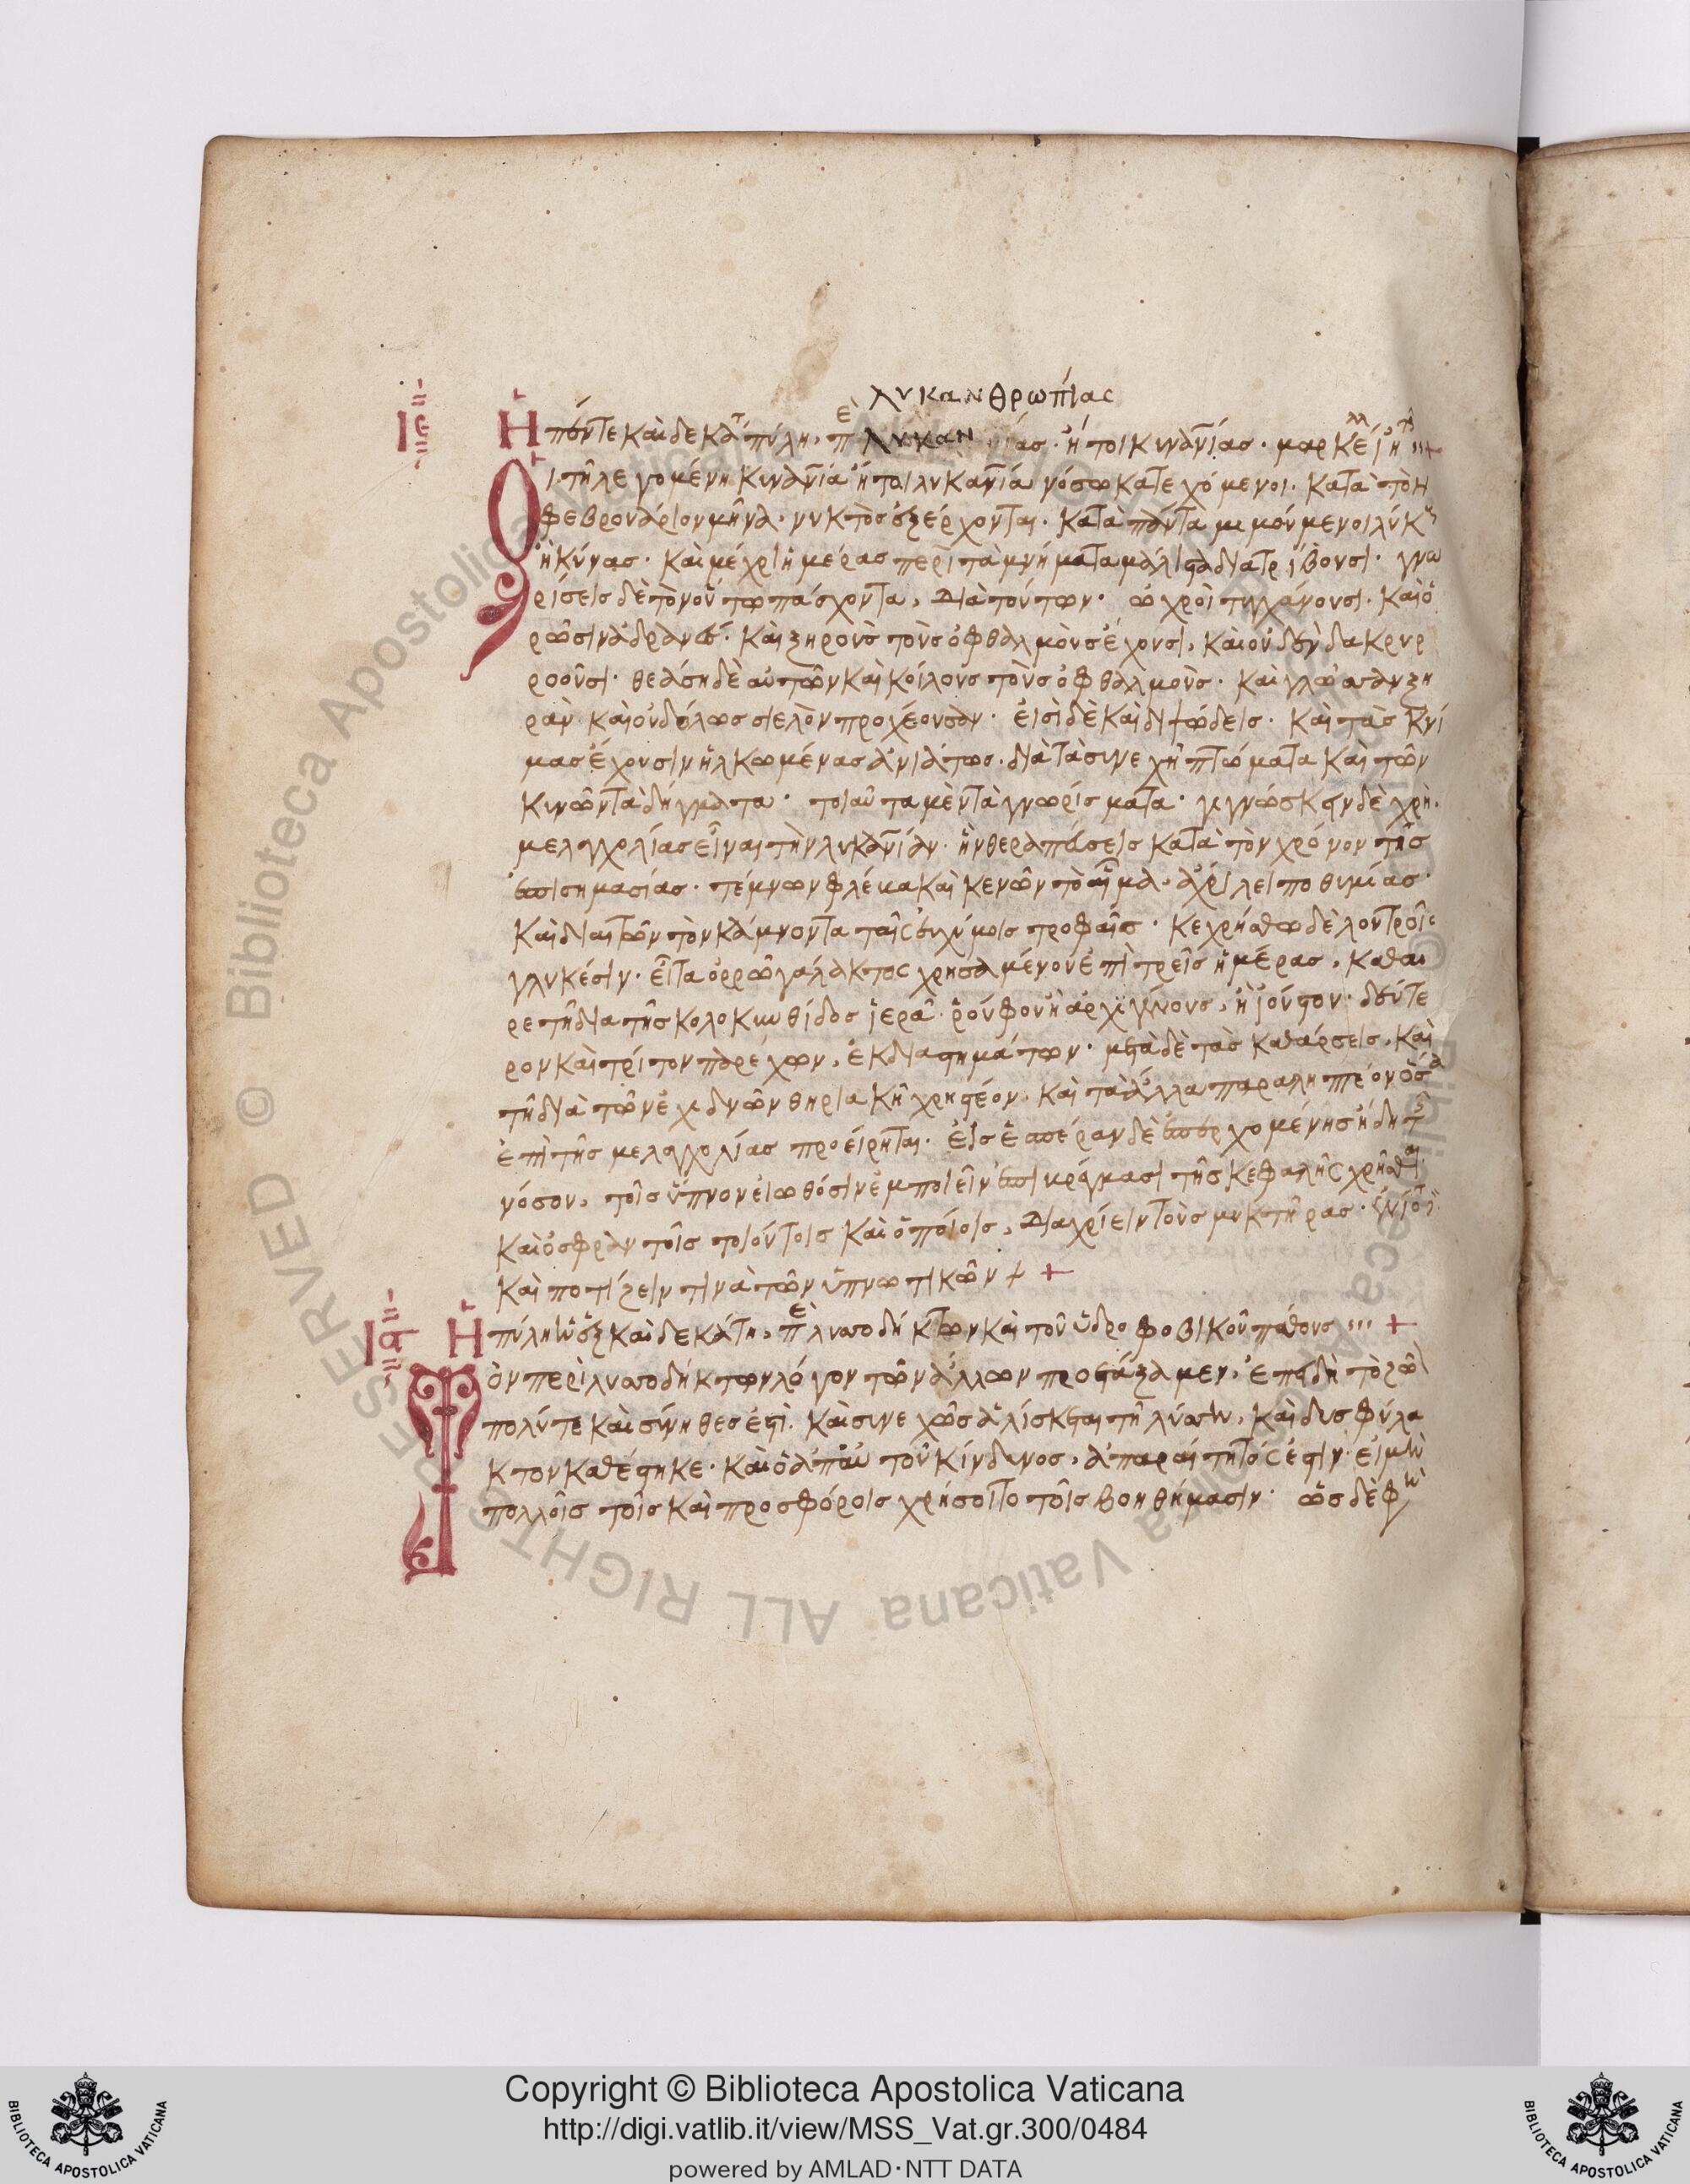 λυκανθρωπίας
ιε Ἡ πέντε καὶ δεκάτ πύλη, πὲ λυκαν ίας ἤτοι κυνανίας· μαρκέλ
Οἱ τῆ λεγομένη κυνανία ἤτοι λυκανία νόσω κατεχόμενοι· κατὰ τὸν
φεβρουάριον μῆνα νυκτὸς ἐξέρχονται· κατὰ πάντα μιμούμενοι λύκους
ἢ κύνας· καὶ μέχρι ἡμέρας περὶ τὰ μνήματα μάλιστα διατρίβουσι· γνω
ρίσεις δὲ τὸν οὕτω πάσχοντα, διὰ τούτων· ὠχροὶ τυγχάνουσι· καὶ ὁ
ρῶσιν ἀδρανές· καὶ ξηροὺς τοὺς ὀφθαλμοὺς ἔχουσι, καὶ οὐδὲν δακρυρ
ροοῦσι· θεάση δὲ αὐτῶν καὶ κοίλους τοὺς ὀφθαλμοὺς· καὶ γλῶσσαν ξη
ρὰν καὶ οὐδόλως σίελον προχέουσαν· εἰσὶ δὲ καὶ διψώδεις· καὶ τὰς κνί
μας ἔχουσιν ἡλκωμένας ἀνιάτως· διὰ τὰ συνεχῆ πτώματα καὶ τῶν
κυνῶν τὰ δήγματα· τοιαῦτα μὲν τὰ γνωρίσματα· γιγνώσκειν δὲ χρὴ·
μελαγχολίας εἶναι τὴν λυκανίαν· ἣν θεραπεύσεις κατὰ τὸν χρόνον τῆς
ἐπισημασίας· τέμνων φλέβα καὶ κενῶν τὸ αἷμα ἄχρι λειποθυμίας·
καὶ διαιτῶν τὸν κάμνοντα ταῖς εὐχύμοις τροφαῖς· κεχρήσθω δὲ λουτροῖς
γλυκέσιν· εἶτα ὀρρῶ γάλακτος χρησάμενον ἐπὶ τρεῖς ἡμέρας, καθαι
ρε τῆ διὰ τῆς κολοκυνθίδος ἱερᾶ ῥούφου ἢ ἀρχιγένους, ἢ ἰούστου· δεύτε
ρον καὶ τρίτον παρέχων, ἐκ διαστημάτων· μετὰ δὲ τὰς καθάρσεις, καὶ
τῆ διὰ τῶν ἐχιδνῶν θηριακῆ χρηστέον· καὶ τὰ ἄλλα παραληπτέον ὅσα
ἐπὶ τῆς μελαγχολίας προείρηται· εἰς ἑσπέραν δὲ ἐπερχομένης ἤδη τῆς
νόσου, τοῖς ὕπνον εἰωθόσιν ἐμποιεῖν ἐπικράγμασι τῆς κεφαλῆς χρῆσθαι
καὶ ὀσφρὰν τοῖς τοιούτοις καὶ ὁποίοις, διαχρίειν τοὺς μυκτῆρας· ἐνίοτε
καὶ ποτίζειν τινὰ τῶν ὑπνωτικῶν +
ιϛ Ἡ πύλη ἡ ἓξ καὶ δεκάτη, πὲ λυσσοδήκτων καὶ τοῦ ὑδροφοβικοῦ πάθους +
Τὸν περὶ λυσσοδήκτων λόγον τῶν ἄλλων προετάξαμεν, ἐπειδὴ τὸ ζῶον
πολύ τε καὶ σύνηθες ἐστὶ· καὶ συνεχῶς ἁλίσκεται τῆ λύσση, καὶ δυσφύλα
κτον καθέστηκε· καὶ ὁ ἀπ' αὐτοῦ κίνδυνος, ἀπαραίτητός ἐστιν· εἰ μὴ
πολλοῖς τοῖς καὶ προσφόροις χρήσοιτο τοῖς βοηθήμασιν· ὧς δὲ φη
Copyright © Biblioteca Apostolica Vaticana
http://digi.vatlib.it/view/MSS_Vat.gr.300/0484
powered by AMLAD·NTT DATA
BIBLIOTECA APOSTOLICA VATICANA
BIBLIOTECA APOSTOLICA VATICANA
© Biblioteca Apostolica Vaticana ALL RIGHTS RESERVED